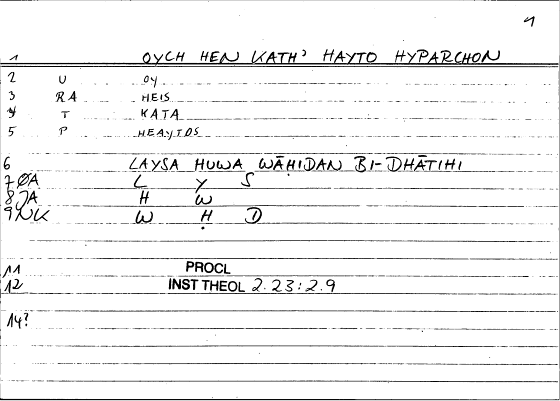 1
1 OYCH HEN KATH' HAYTO HYPARCHON
2 U OY
3 RA HEIS
4 T KATA
5 P HEAYTOS
6 LAYSA HUWA WĀḤIDAN BI-DHĀTIHI
7 ØA L Y S
8 JA H W
9 NK W Ḥ D
11 PROCL
12 INST THEOL 2.23:2.9
14?